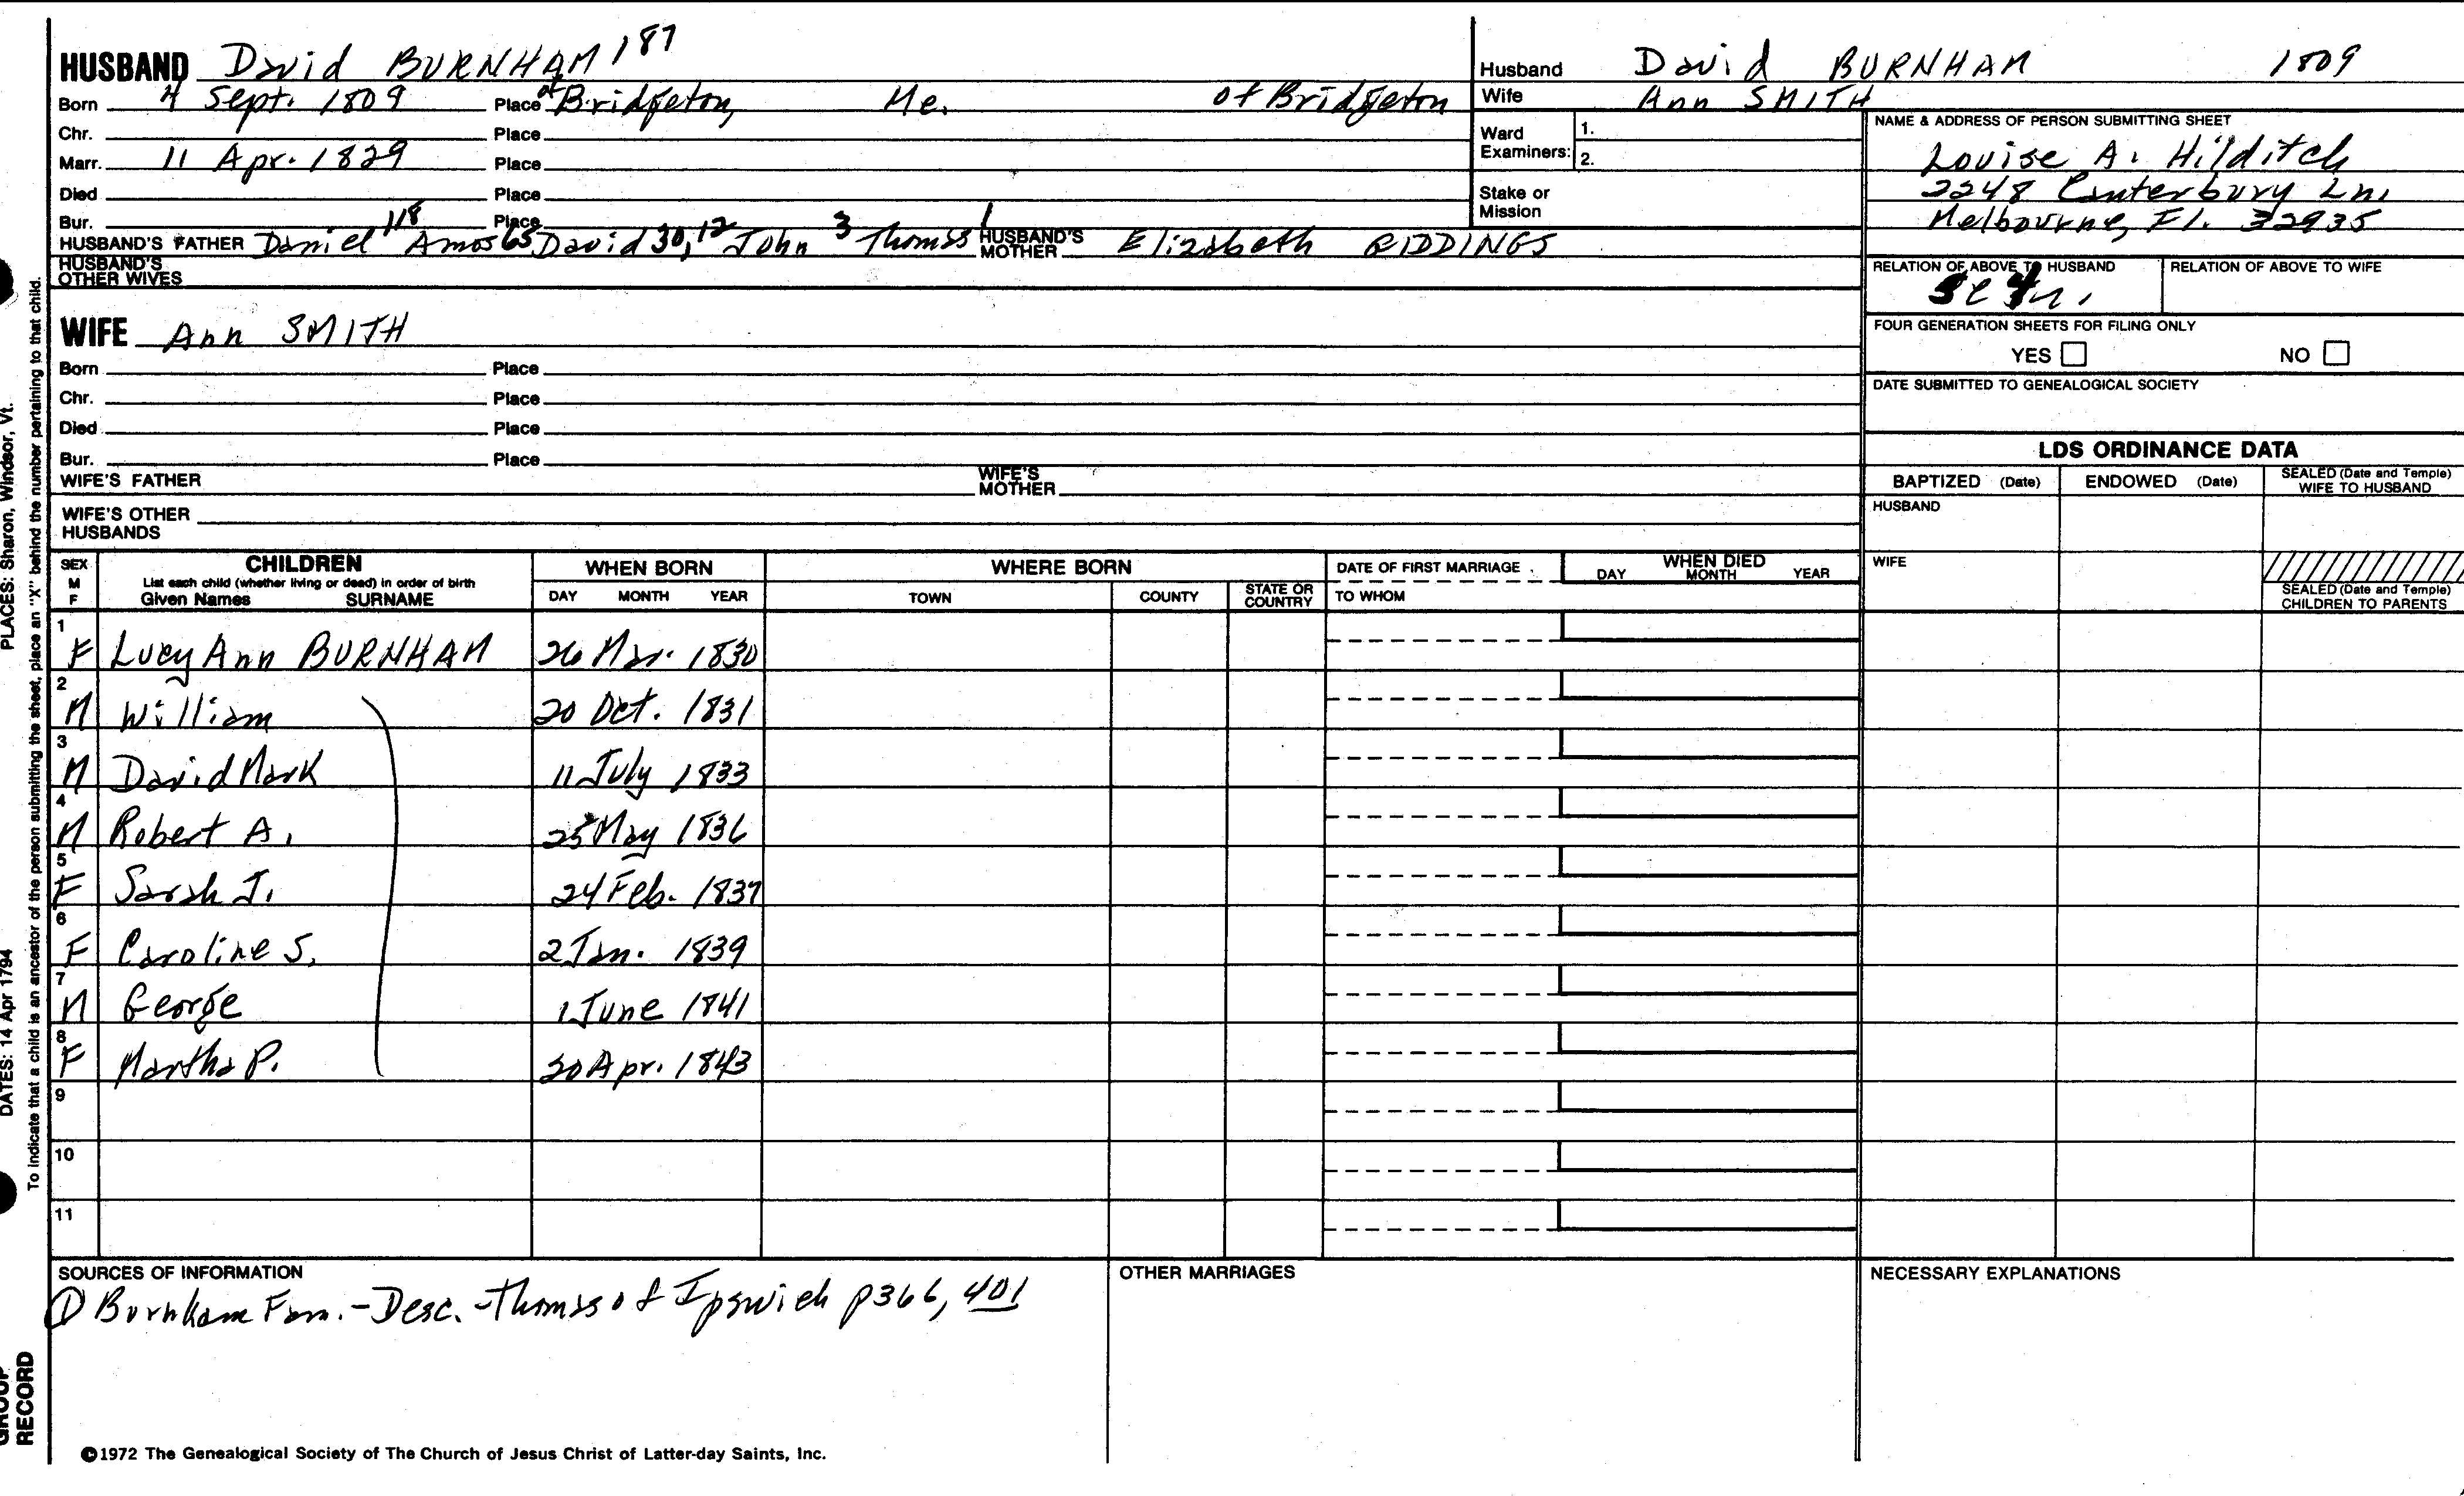 HUSBAND David BURNHAM 187
Born 4 Sept. 1809 Place of Bridgeton, Me. of Bridgeton
Chr. Place
Marr. 11 Apr. 1829 Place
Died Place
Bur. Place
HUSBAND'S FATHER Daniel 118 Amos 65 David 30, 12 John 3 Thomas 1 HUSBAND'S MOTHER Elizabeth RIDDINGS
HUSBAND'S OTHER WIVES
WIFE Ann SMITH
Born Place
Chr. Place
Died Place
Bur. Place
WIFE'S FATHER WIFE'S MOTHER
WIFE'S OTHER HUSBANDS
Husband David BURNHAM 1809
Wife Ann SMITH
Ward Examiners: 1.
2.
Stake or Mission
NAME & ADDRESS OF PERSON SUBMITTING SHEET
Louise A. Hilditch
2248 Canterbury Ln.
Melbourne, Fl. 32935
RELATION OF ABOVE TO HUSBAND RELATION OF ABOVE TO WIFE
FOUR GENERATION SHEETS FOR FILING ONLY
YES NO
DATE SUBMITTED TO GENEALOGICAL SOCIETY
LDS ORDINANCE DATA
BAPTIZED (Date) ENDOWED (Date) SEALED (Date and Temple) WIFE TO HUSBAND
HUSBAND
WIFE
SEALED (Date and Temple) CHILDREN TO PARENTS
SEX M F CHILDREN WHEN BORN WHERE BORN DATE OF FIRST MARRIAGE WHEN DIED
List each child (whether living or dead) in order of birth
Given Names SURNAME DAY MONTH YEAR TOWN COUNTY STATE OR COUNTRY TO WHOM DAY MONTH YEAR
1 F Lucy Ann BURNHAM 26 Mar. 1830
2 M William 20 Oct. 1831
3 M David Mark 11 July 1833
4 M Robert A. 25 May 1836
5 F Sarah J. 24 Feb. 1837
6 F Caroline S. 2 Jan. 1839
7 M George 1 June 1841
8 F Martha P. 20 Apr. 1843
9
10
11
SOURCES OF INFORMATION OTHER MARRIAGES NECESSARY EXPLANATIONS
① Burnham Fam. - Desc. - Thomas of Ipswich p366, 401
©1972 The Genealogical Society of The Church of Jesus Christ of Latter-day Saints, Inc.
PLACES: Sharon, Windsor, Vt.
DATES: 14 Apr 1794
To indicate that a child is an ancestor of the person submitting the sheet, place an "X" behind the number pertaining to that child.
GROUP RECORD